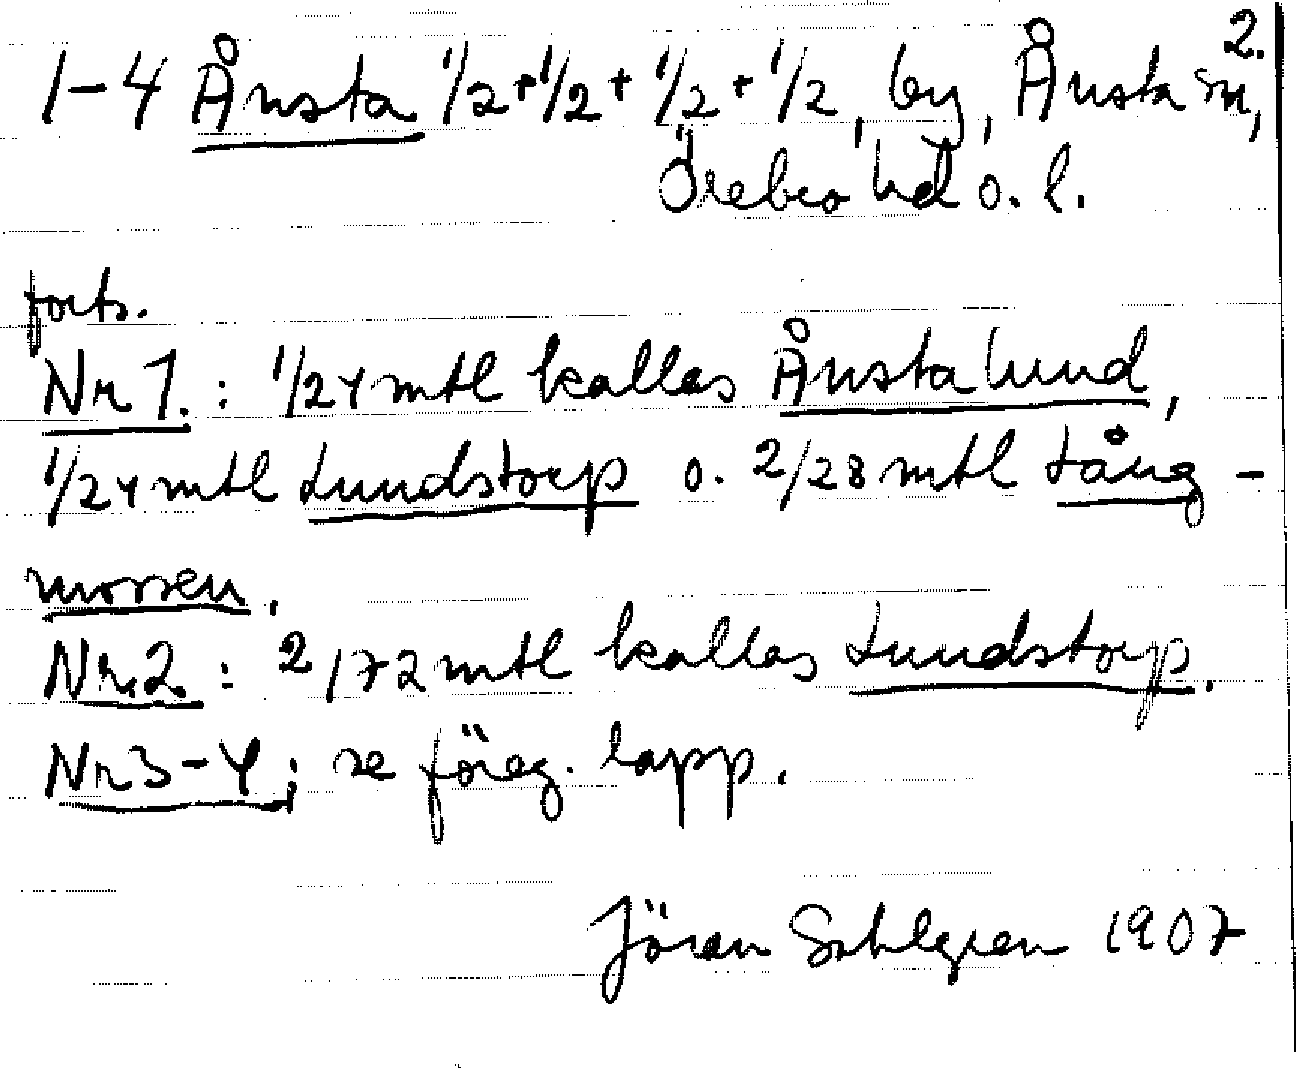 2.
1-4 Ånsta 1/2+1/2+1/2+1/2, by, Ånsta sn,
Örebro hd o. l.
forts.
Nr 1.: 1/24 mtl kallas Ånstalund,
1/24 mtl Lundstorp o. 2/28 mtl Lång-
mossen.
Nr. 2.: 2/72 mtl kallas Lundstorp.
Nr 3-4; se föreg. lapp.
Jöran Sahlgren 1907